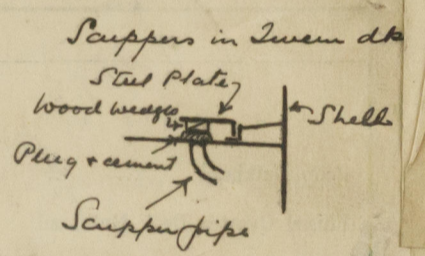 Scuppers in Tween dk
Steel Plate
Wood wedges
Shell
Plug + cement
Scupper pipe